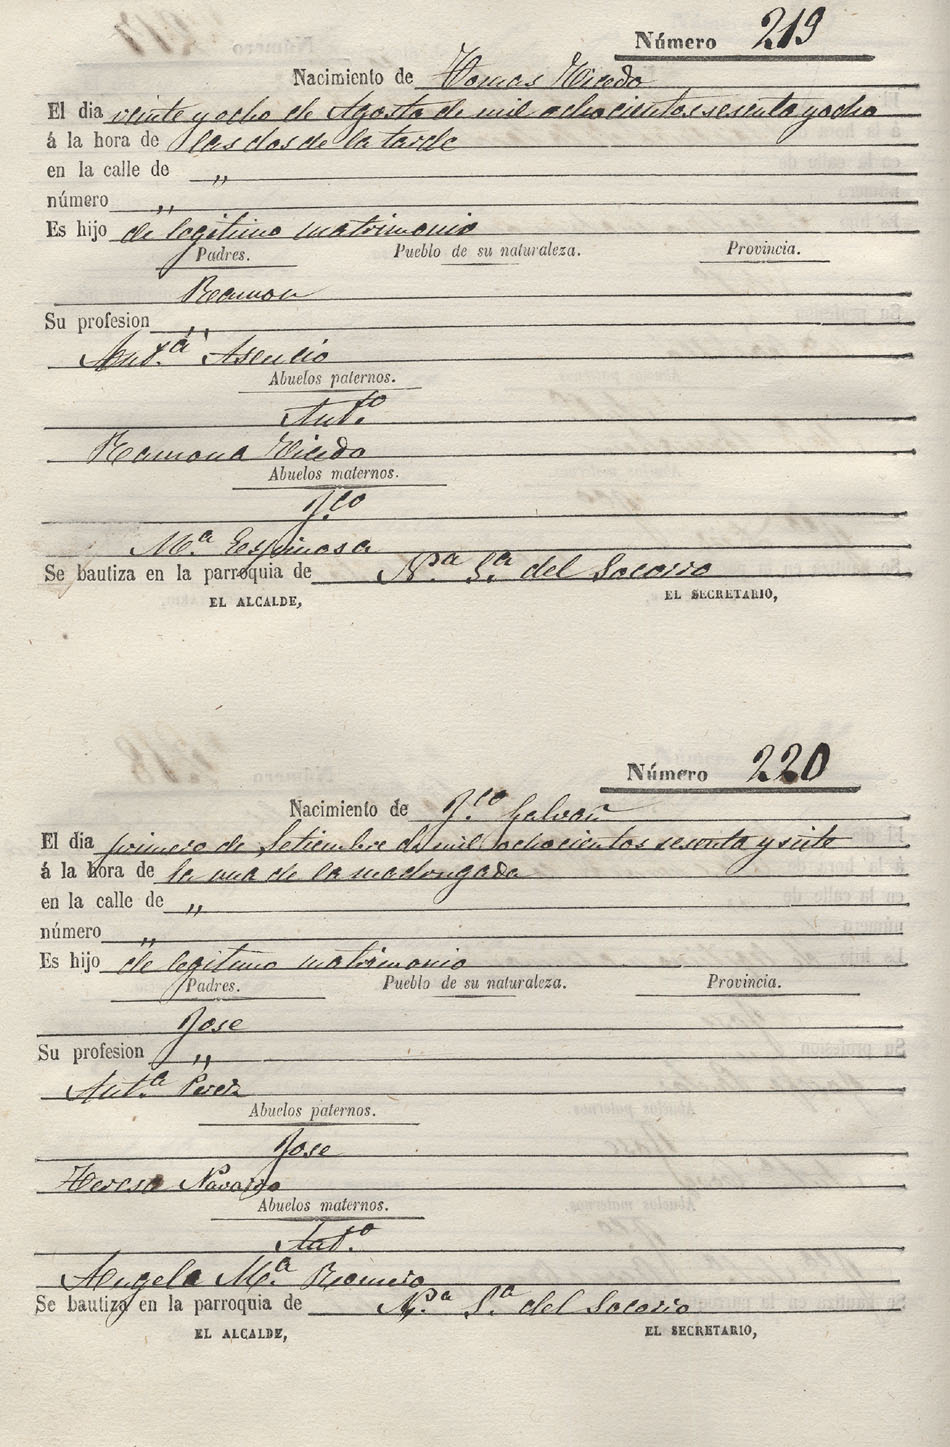 Número 219
Nacimiento de Tomas Niedo
El dia veinte y ocho de Agosto de mil ochocientos sesenta y ocho
á la hora de las dos de la tarde
en la calle de „
número „
Es hijo de legitimo matrimonio
Padres. Pueblo de su naturaleza. Provincia.
Ramon
Su profesion „
Ant.ª Asencio
Abuelos paternos.
Ant.º
Ramona
Abuelos maternos.
F.co
M.ª Espinosa
Se bautiza en la parroquia de N.ª S.ª del Socorro
EL ALCALDE, EL SECRETARIO,
Número 220
Nacimiento de F.co Galvañ
El dia primero de Setiembre de mil ochocientos sesenta y siete
á la hora de la una de la madrugada
en la calle de „
número „
Es hijo de legitimo matrimonio
Padres. Pueblo de su naturaleza. Provincia.
Jose
Su profesion „
Ant.ª Perez
Abuelos paternos.
Jose
Teresa Navarro
Abuelos maternos.
Ant.º
Angela M.ª Romero
Se bautiza en la parroquia de N.ª S.ª del Socorro
EL ALCALDE, EL SECRETARIO,